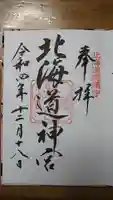 奉拝
北海道神宮
令和四年十二月十八日